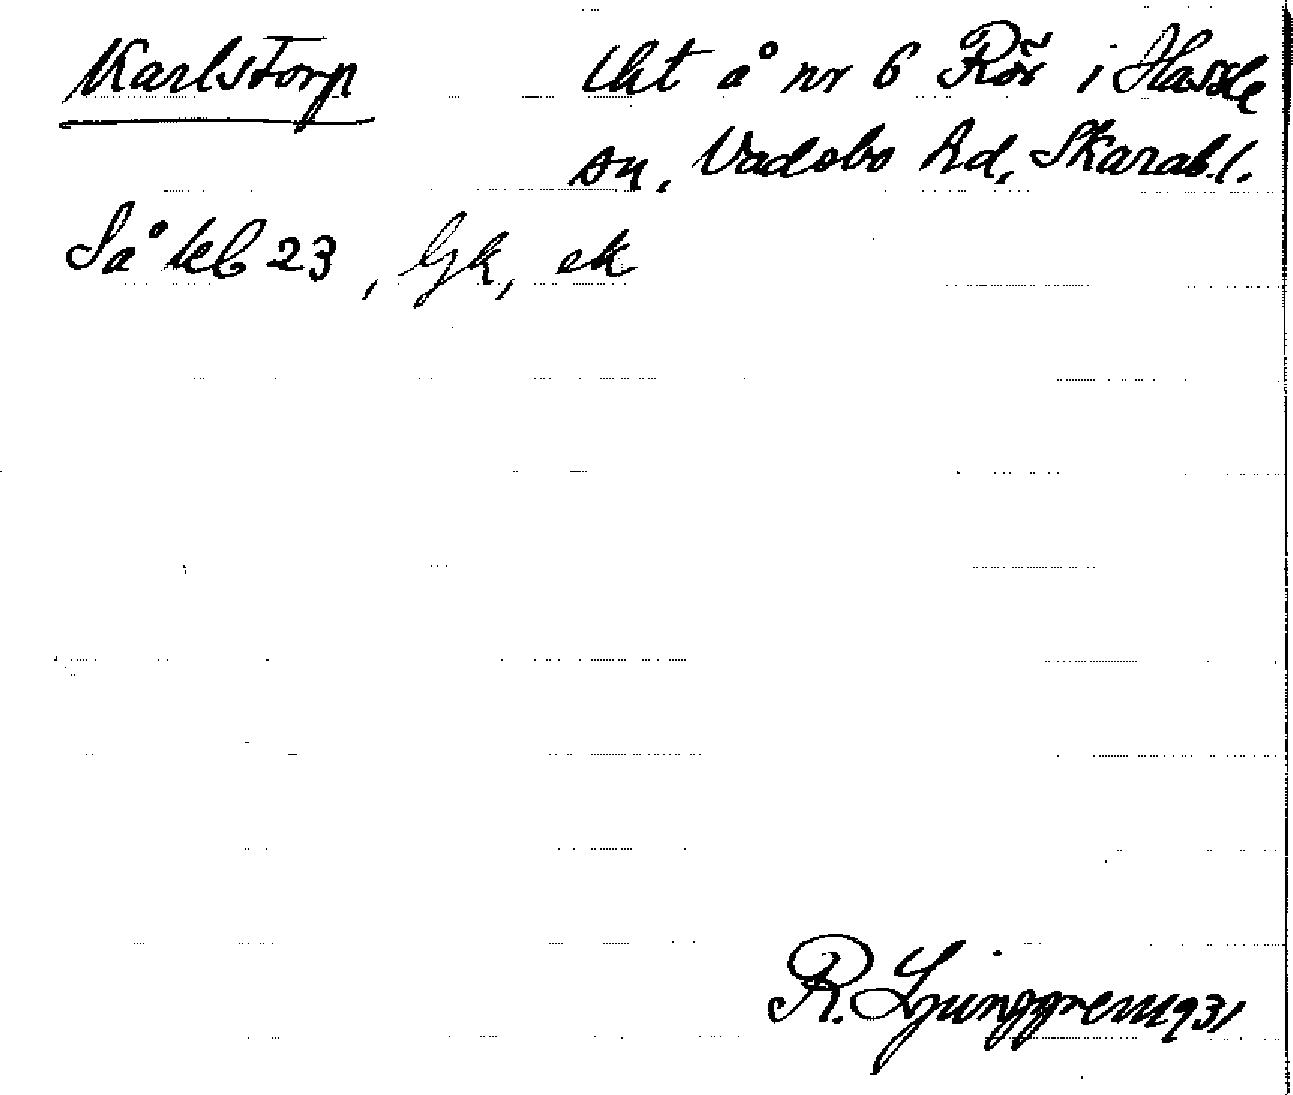 Karlstorp lht å nr 6 Rör i Hassle
sn, Vadsbo hd, Skarab. l.
Så kb 23, Gk, ek
R. Ljunggren 1931